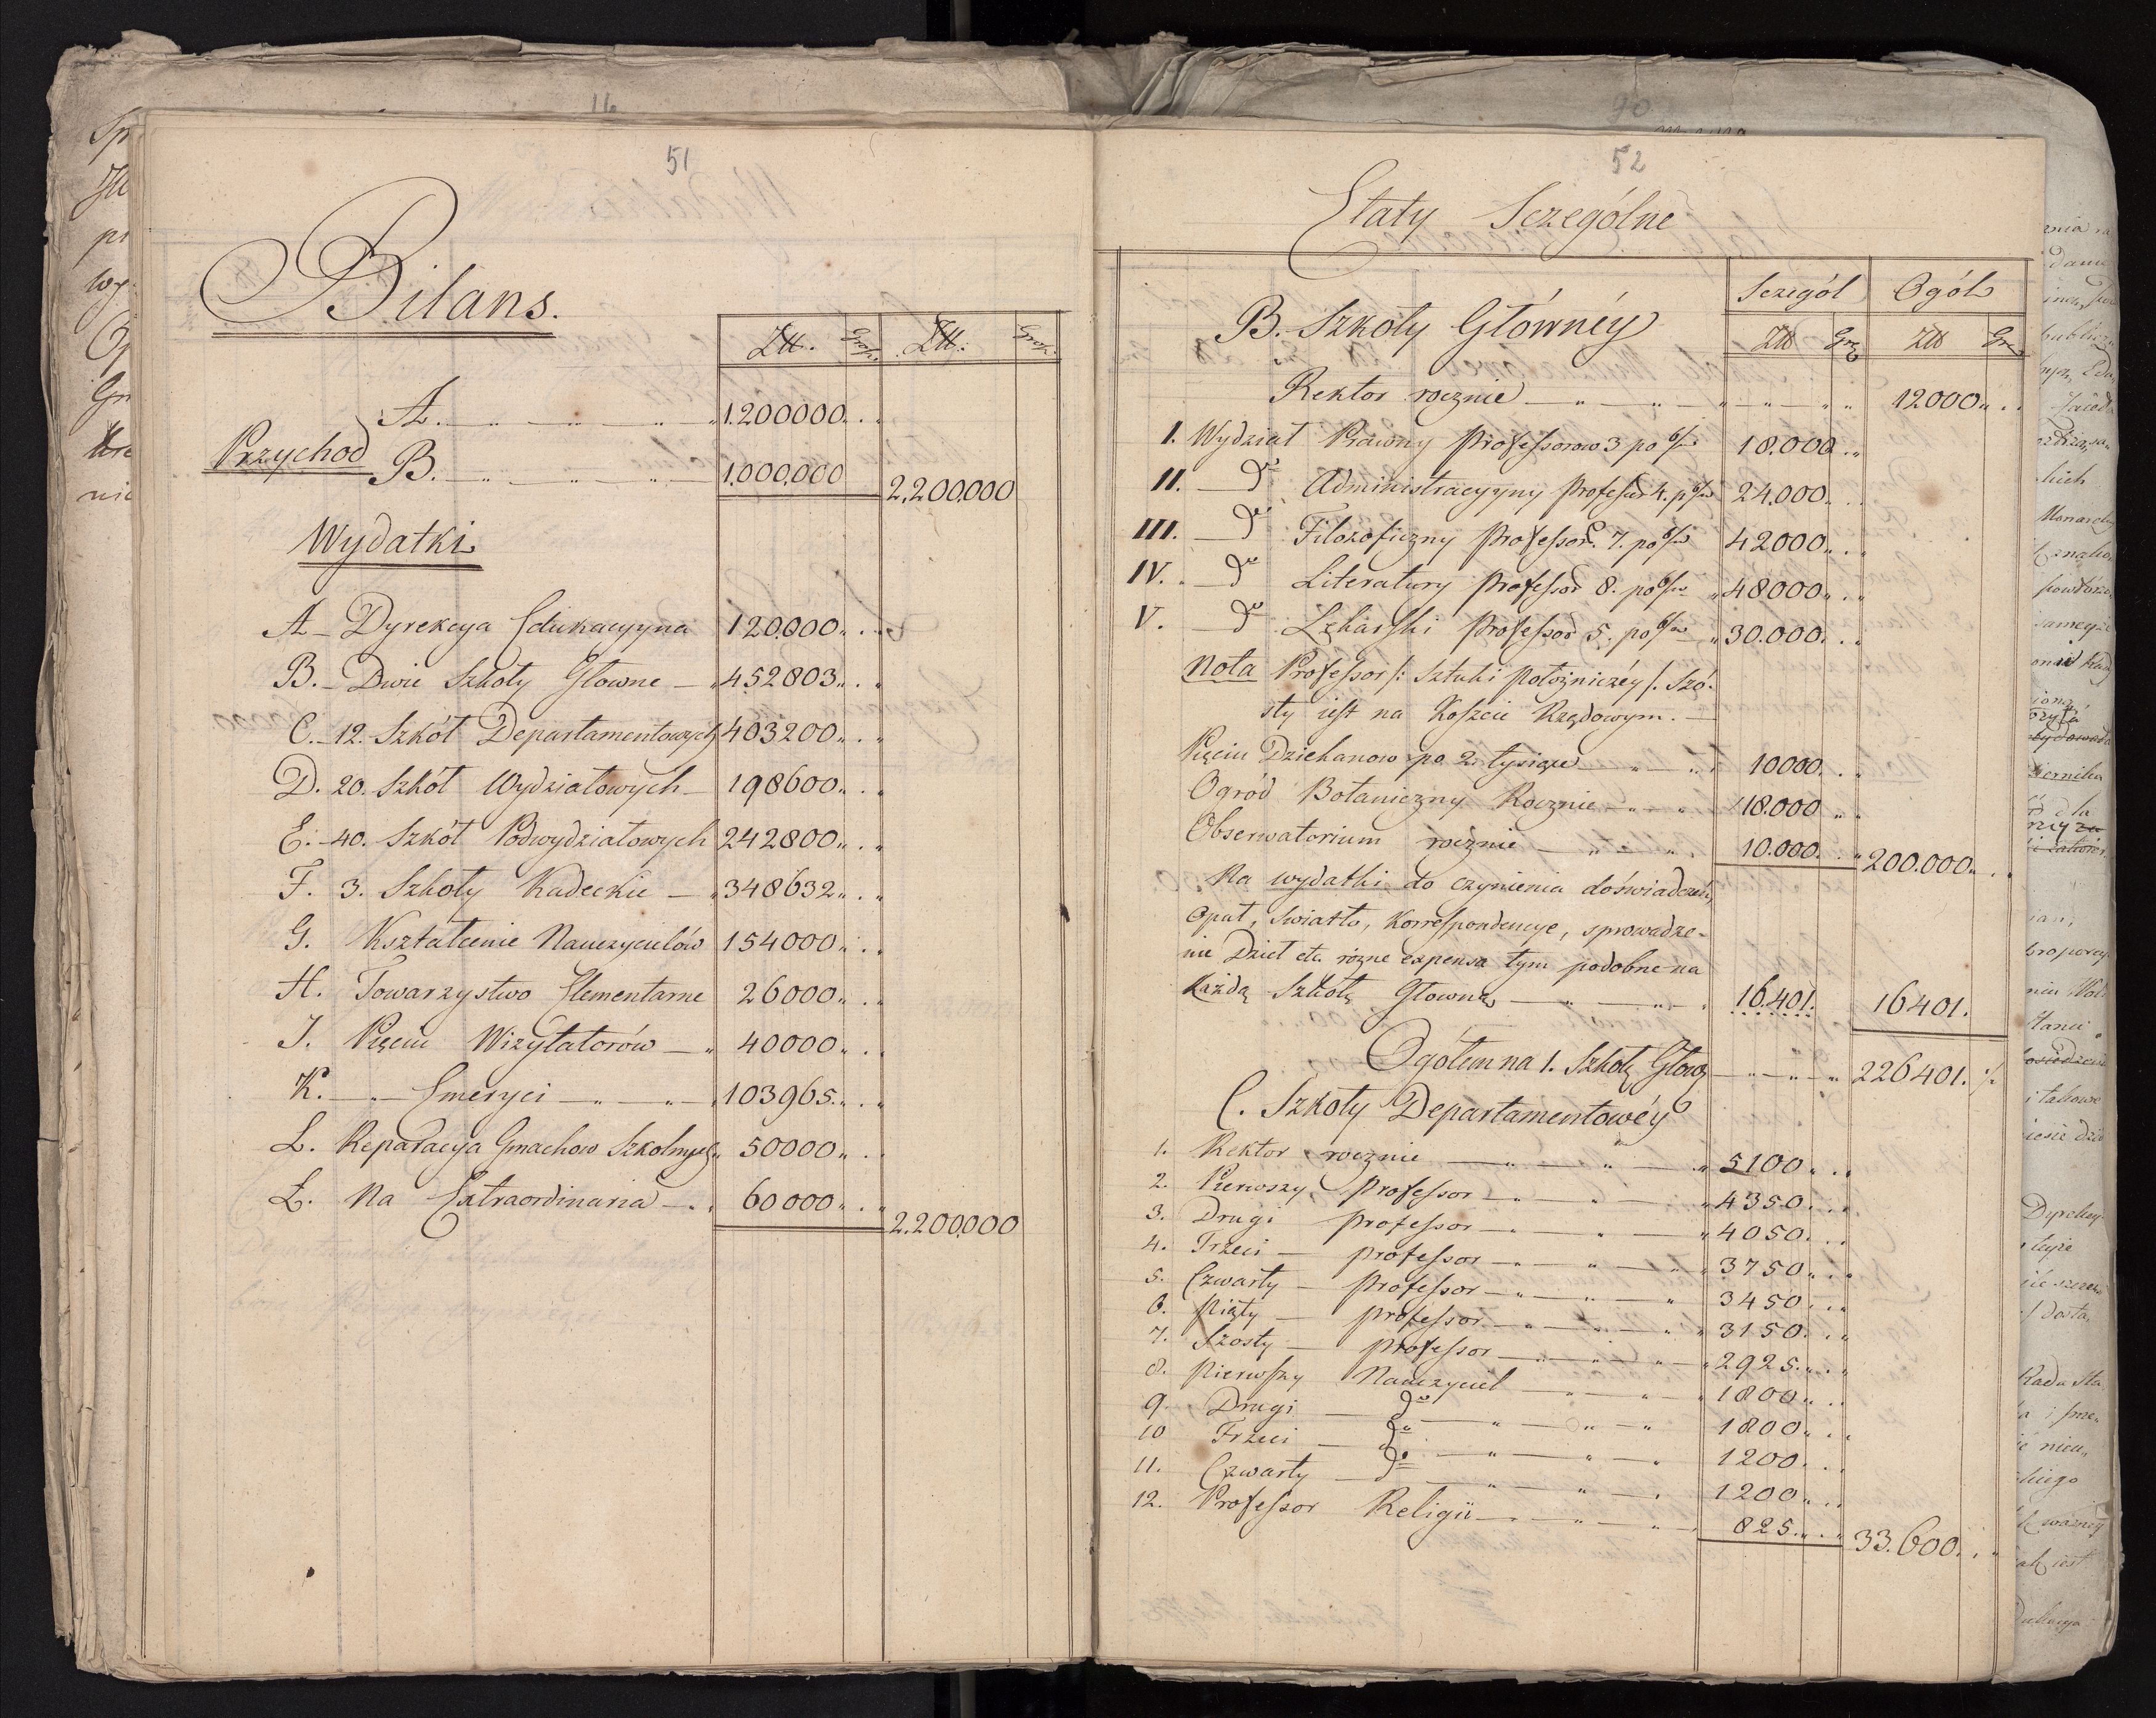 51
Bilans.
Złł. Grosz. Złł: Grosz.
A. 1.200000
Przychod B. 1.000.000 2.200.000
Wydatki
A – Dyrekcya Edukacyyna 120.000
B. – Dwie Szkoły Głowne – 452803
C. – 12. Szkół Departamentowych 403200
D. 20. Szkół Wydziałowych – 198600
E. – 40. Szkół Podwydziałowych 242800
F. 3. Szkoły Kadeckie – 348632
G. Kształcenie Nauczycielów 154000
H. Towarzystwo Elementarne 26000
I. Pięciu Wizytatorów – 40000
K. – Emeryci – 103965
L. Reparacya Gmachow Szkolnych 50000
Ł. Na Extraordinaria – 60000
2.200.000
52
Etaty Sczególne
Sczegół Ogół
B. Szkoły Główney Złł Gr. Złł Gr.
Rektor rocznie — 12000
I. Wydział Prawny Professorow 3 po 6/m 18.000
II. — do Administracyyny Profesor 4. p 6/m 24.000
III. — do Filozoficzny Professor. 7. po 6/m 42000
IV. — do Literatury Professor 8. po 6/m 48000
V. — do Lekarski Professor 5. po 6/m 30.000
Nota Professor /: Sztuki Położniczéy /. Szó-
sty iest na Koszcie Rządowym. —
Pięciu Dziekanow po 2. tysiące — 10000
Ogród Botaniczny Rocznie — 18.000
Obserwatorium rocznie — 10.000 200.000
Na wydatki do czynienia doświadczeń,
Opał, Swiatło, Korrespondencye, sprowadze-
nie Dzieł etc. rózne expensa tym podobne na
Każdą Szkołę Głowną — 16.401. 16401.
Ogółem na 1. Szkołę Głow: — 226401.
C. Szkoły Departamentowéy
1. Rektor rocznie — 5100
2. Pierwszy Professor — 4350
3. Drugi Professor — 4050
4. Trzeci — Professor — 3750
5. Czwarty — Professor — 3450
6. Piąty — Professor — 3150
7. Szosty — Professor — 2925
8. Pierwszy Nauczyciel — 1800
9. Drugi — do — 1800
10 Trzeci — do — 1200
11. Czwarty — do — 1200
12. Professor Religii — 825 33.600